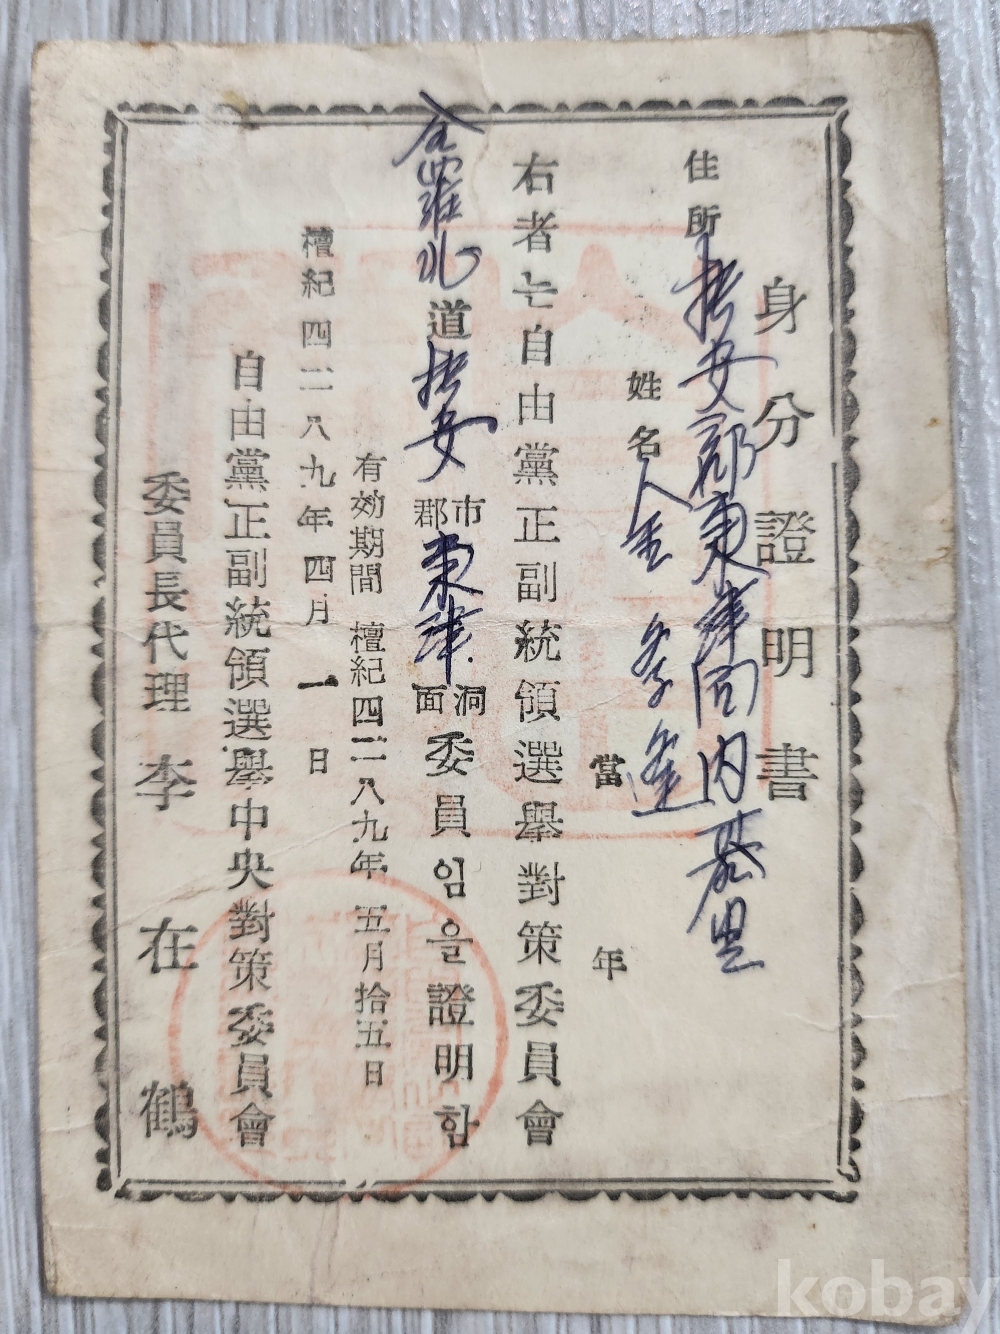 身分證明書
住所 扶安郡東津面內基里
姓名 金
當 年
右者는自由黨正副統領選擧對策委員會
全羅北道扶安郡市東津面洞委員임을證明함
有効期間 檀紀四二八九年五月拾五日
檀紀四二八九年四月一日
自由黨正副統領選擧中央對策委員會
委員長代理 李在鶴
kobay